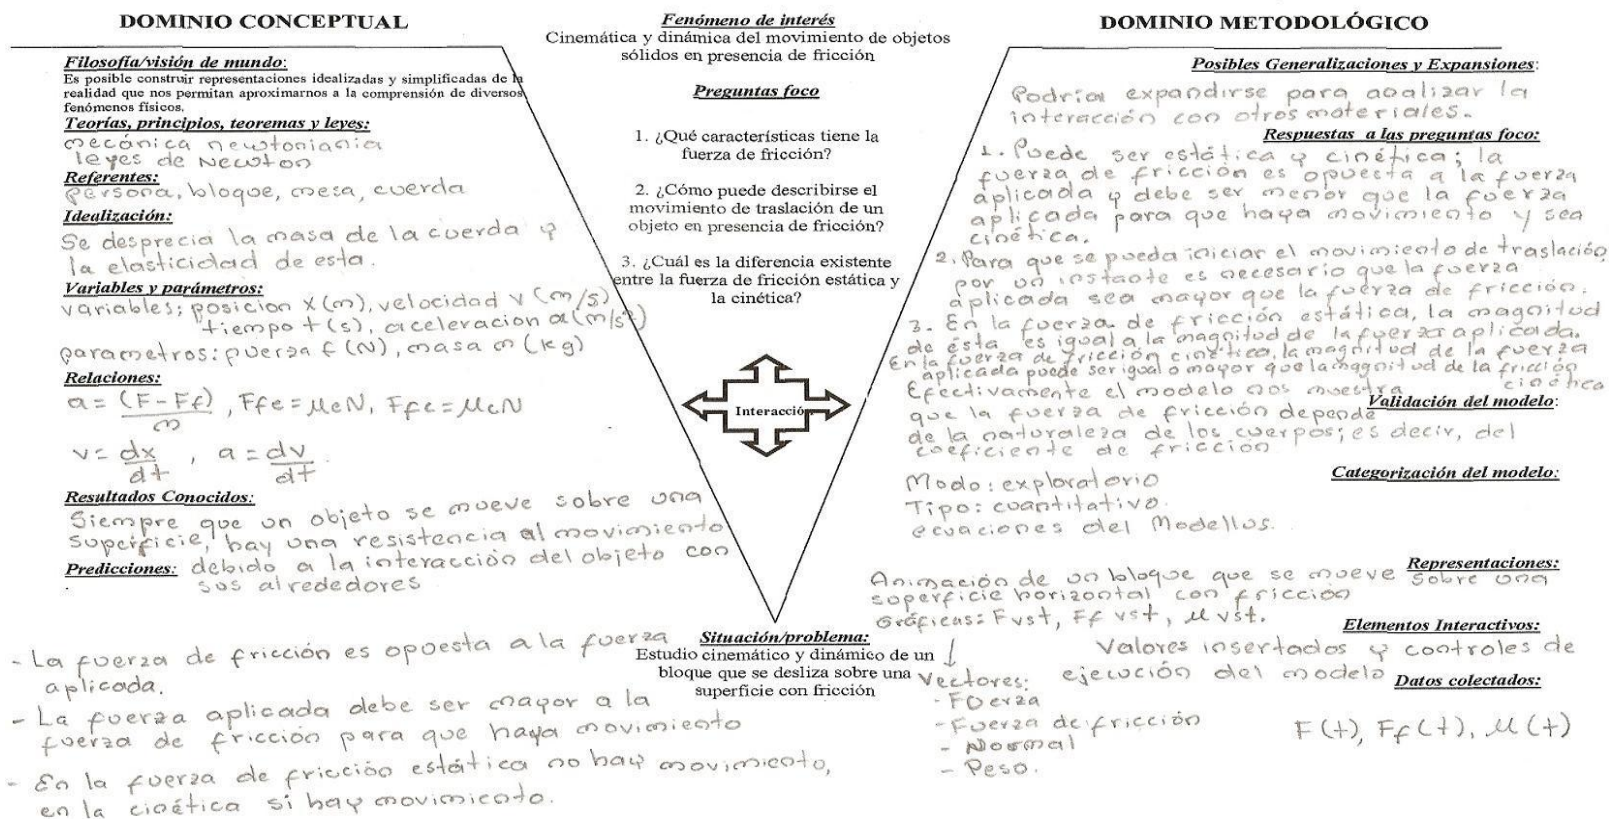 DOMINIO CONCEPTUAL
Filosofía/visión de mundo:
Es posible construir representaciones idealizadas y simplificadas de la
realidad que nos permitan aproximarnos a la comprensión de diversos
fenómenos físicos.
Teorías, principios, teoremas y leyes:
mecánica newtoniania
leyes de Newton
Referentes:
persona, bloque, mesa, cuerda
Idealización:
Se desprecia la masa de la cuerda y
la elasticidad de esta.
Variables y parámetros:
variables: posicion x(m), velocidad v (m/s)
tiempo t (s), aceleracion a(m/s²)
parametros: fuerza f (N), masa m (kg)
Relaciones:
a = (F-Ff)/m , Ffe = μeN, Ffc = μcN
v = dx/dt , a = dv/dt .
Resultados Conocidos:
Siempre que un objeto se mueve sobre una
superficie, hay una resistencia al movimiento
debido a la interacción del objeto con
sus alrededores
Predicciones:
- La fuerza de fricción es opuesta a la fuerza
aplicada.
- La fuerza aplicada debe ser mayor a la
fuerza de fricción para que haya movimiento
- En la fuerza de fricción estática no hay movimiento,
en la cinética si hay movimiento.
Fenómeno de interés
Cinemática y dinámica del movimiento de objetos
sólidos en presencia de fricción
Preguntas foco
1. ¿Qué características tiene la
fuerza de fricción?
2. ¿Cómo puede describirse el
movimiento de traslación de un
objeto en presencia de fricción?
3. ¿Cuál es la diferencia existente
entre la fuerza de fricción estática y
la cinética?
Interacción
Situación/problema:
Estudio cinemático y dinámico de un
bloque que se desliza sobre una
superficie con fricción
DOMINIO METODOLÓGICO
Posibles Generalizaciones y Expansiones:
Podría expandirse para analizar la
interacción con otros materiales.
Respuestas a las preguntas foco:
1. Puede ser estática y cinética; la
fuerza de fricción es opuesta a la fuerza
aplicada y debe ser menor que la fuerza
aplicada para que haya movimiento y sea
cinética.
2. Para que se pueda iniciar el movimiento de traslación
por un instante es necesario que la fuerza
aplicada sea mayor que la fuerza de fricción.
3. En la fuerza de fricción estática, la magnitud
de ésta es igual a la magnitud de la fuerza aplicada.
En la fuerza de fricción cinética, la magnitud de la fuerza
aplicada puede ser igual o mayor que la magnitud de la fricción
cinética
Validación del modelo:
Efectivamente el modelo nos muestra
que la fuerza de fricción depende
de la naturaleza de los cuerpos; es decir, del
coeficiente de fricción
Categorización del modelo:
Modo: exploratorio
Tipo: cuantitativo.
ecuaciones del Modellus.
Representaciones:
Animación de un bloque que se mueve sobre una
superficie horizontal con fricción
Gráficas: F vs t, Ff vs t, μ vs t.
Vectores:
- Fuerza
- Fuerza de fricción
- Normal
- Peso.
Elementos Interactivos:
Valores insertados y controles de
ejecución del modelo
Datos colectados:
F(t), Ff(t), μ(t)